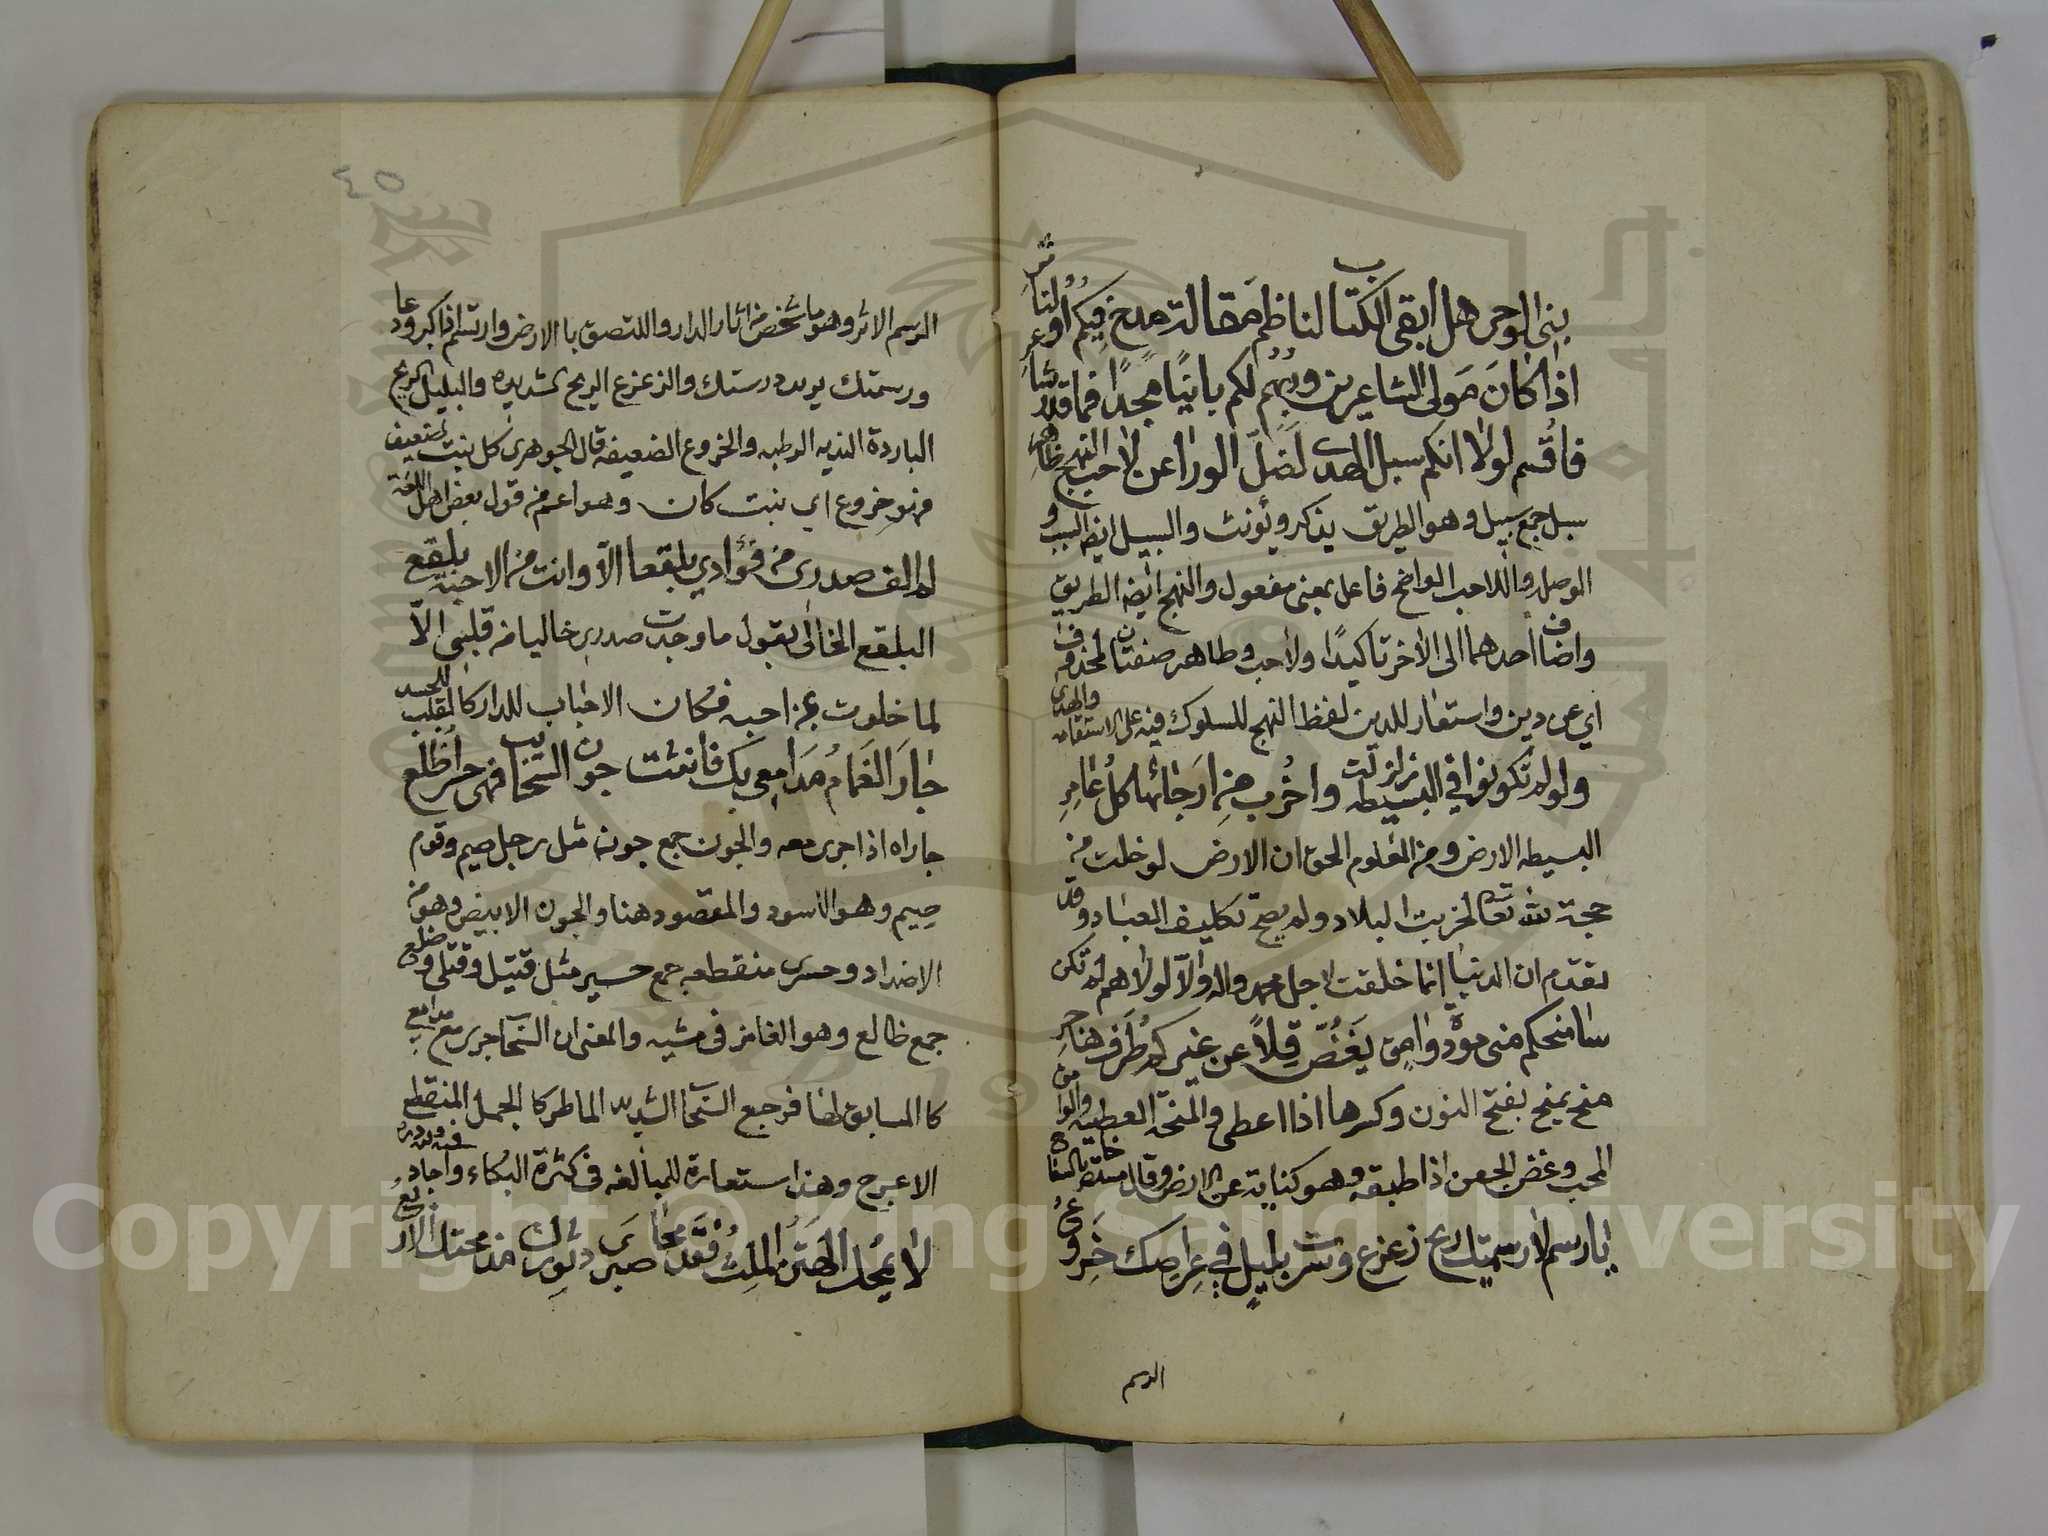 بنى الوحى هل ابقى الكتاب لناظم مقالة مدح فيكم او لناثر
اذا كان مولى الشاعرين وربهم لكم بانيا مجدا فما قدر شاعر
فاقسم لولا انكم سبل الهدى لضل الورا عن لاحب النهج ظاهر
سبل جمع سبيل وهو الطريق يذكر ويؤنث والسبيل ايضا السبب و
الوصله واللاحب الواضح فاعل بمعنى مفعول والنهج ايضا الطريق
واضاف احدهما الى الاخر تاكيدا ولاحب وظاهر صفتان لمحذوف
اي عن دين واستعار للدين لفظ النهج للسلوك فيه على الاستقامه والهدى
ولو لم تكونوا في البسيطه زلزلت واخرب من ارجائها كل عامر
البسيطه الارض ومن المعلوم الحق ان الارض لو خلت من
حجة لله تعالى لخربت البلاد ولم يصح تكليف العباد وقد
تقدم ان الدنيا انما خلقت لاجل محمد واله والا لولاهم لم تكن
سامنحكم منى مودة وامق يغض قلا عن غيركم طرف هاجر
منح يمنح بفتح النون وكسرها اذا اعطى والمنحة العطيه والوامق
المحب وغض الجفن اذا طبقه وهو كناية عن الارض وقال
يا رسم لا رسمتك ريح زعزع وسرت بليل في عراصك خروع
الرسم
٤٥
الرسم الاثر وهو ما شخص من اثار الدار واللتصق بالارض وارتسم اذا كبر ودعا
ورسمتك يريد درستك والزعزع الريح الشديده والبليل الريح
الباردة النديه الرطبه والخروع الضعيفه قال الجوهرى كل نبت ضعيف
فهو خروع اي نبت كان وهو اعم من قول بعض اهل اللغة
لم الف صدرى من فؤادي بلقعا الا وانت من الاحبة بلقع
البلقع الخالى يقول ما وجدت صدرى خاليا من قلبى الا
لما خلوت من احبه فكان الاحباب للدار كالقلب للجسد
جارى الغمام مدامعي بك فانثنت جون السحائب فهى حسرى ظلع
جاراه اذا جرى معه والجون جمع جونه مثل رجل صيم وقوم
صيم وهو الاسود والمقصود هنا والجون الابيض وهو من
الاضداد وحسرى منقطعه جمع حسير مثل قتيل وقتلى وظلع
جمع ظالع وهو الغامز فى مشيه والمعنى ان السحاب جرى مع مدامعي
كالمسابق لها فرجع السحاب الشديد الماطر كالجمل المنقطع
الاعرج وهذا استعارة للمبالغه فى كثرة البكاء واجاد فيه
لا يمحك الهتن الملث فقد محا صبرى دثورك مذ محتك الاربع